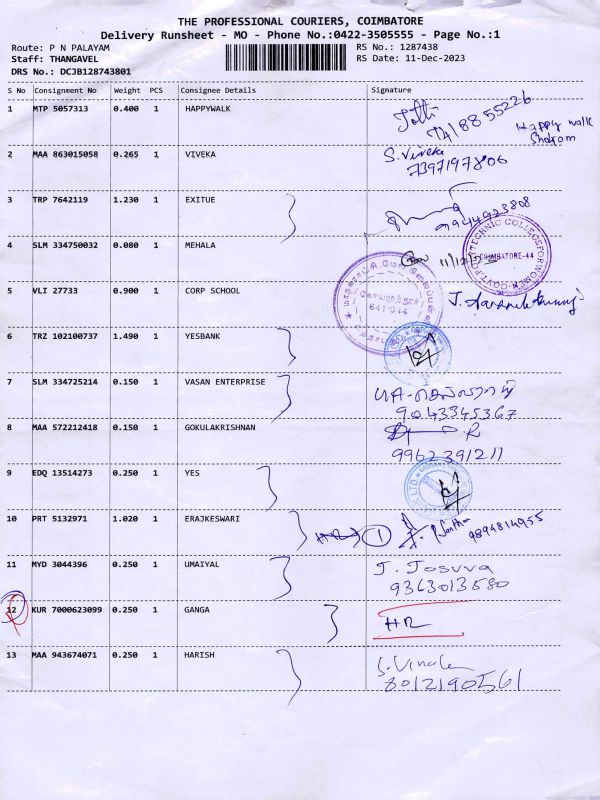 THE PROFESSIONAL COURIERS, COIMBATORE
Delivery Runsheet - MO - Phone No.:0422-3505555 - Page No.:1
Route: P N PALAYAM
Staff: THANGAVEL
DRS No.: DCJB128743801
RS No.: 1287438
RS Date: 11-Dec-2023
S No Consignment No Weight PCS Consignee Details Signature
1 MTP 5057313 0.400 1 HAPPYWALK
7418855226
Happy walk
2 MAA 863015058 0.265 1 VIVEKA S. Viveka
7397197806
3 TRP 7642119 1.230 1 EXITUE
9944923808
4 SLM 334750032 0.080 1 MEHALA
COIMBATORE-44
5 VLI 27733 0.900 1 CORP SCHOOL
641 044
6 TRZ 102100737 1.490 1 YESBANK
7 SLM 334725214 0.150 1 VASAN ENTERPRISE
9043345367
8 MAA 572212418 0.150 1 GOKULAKRISHNAN
9962391211
9 EDQ 13514273 0.250 1 YES
10 PRT 5132971 1.020 1 ERAJKESWARI 1
9894814955
11 MYD 3044396 0.250 1 UMAIYAL J. Josuva
9363013580
12 KUR 7000623099 0.250 1 GANGA HR
13 MAA 943674071 0.250 1 HARISH
8012190561